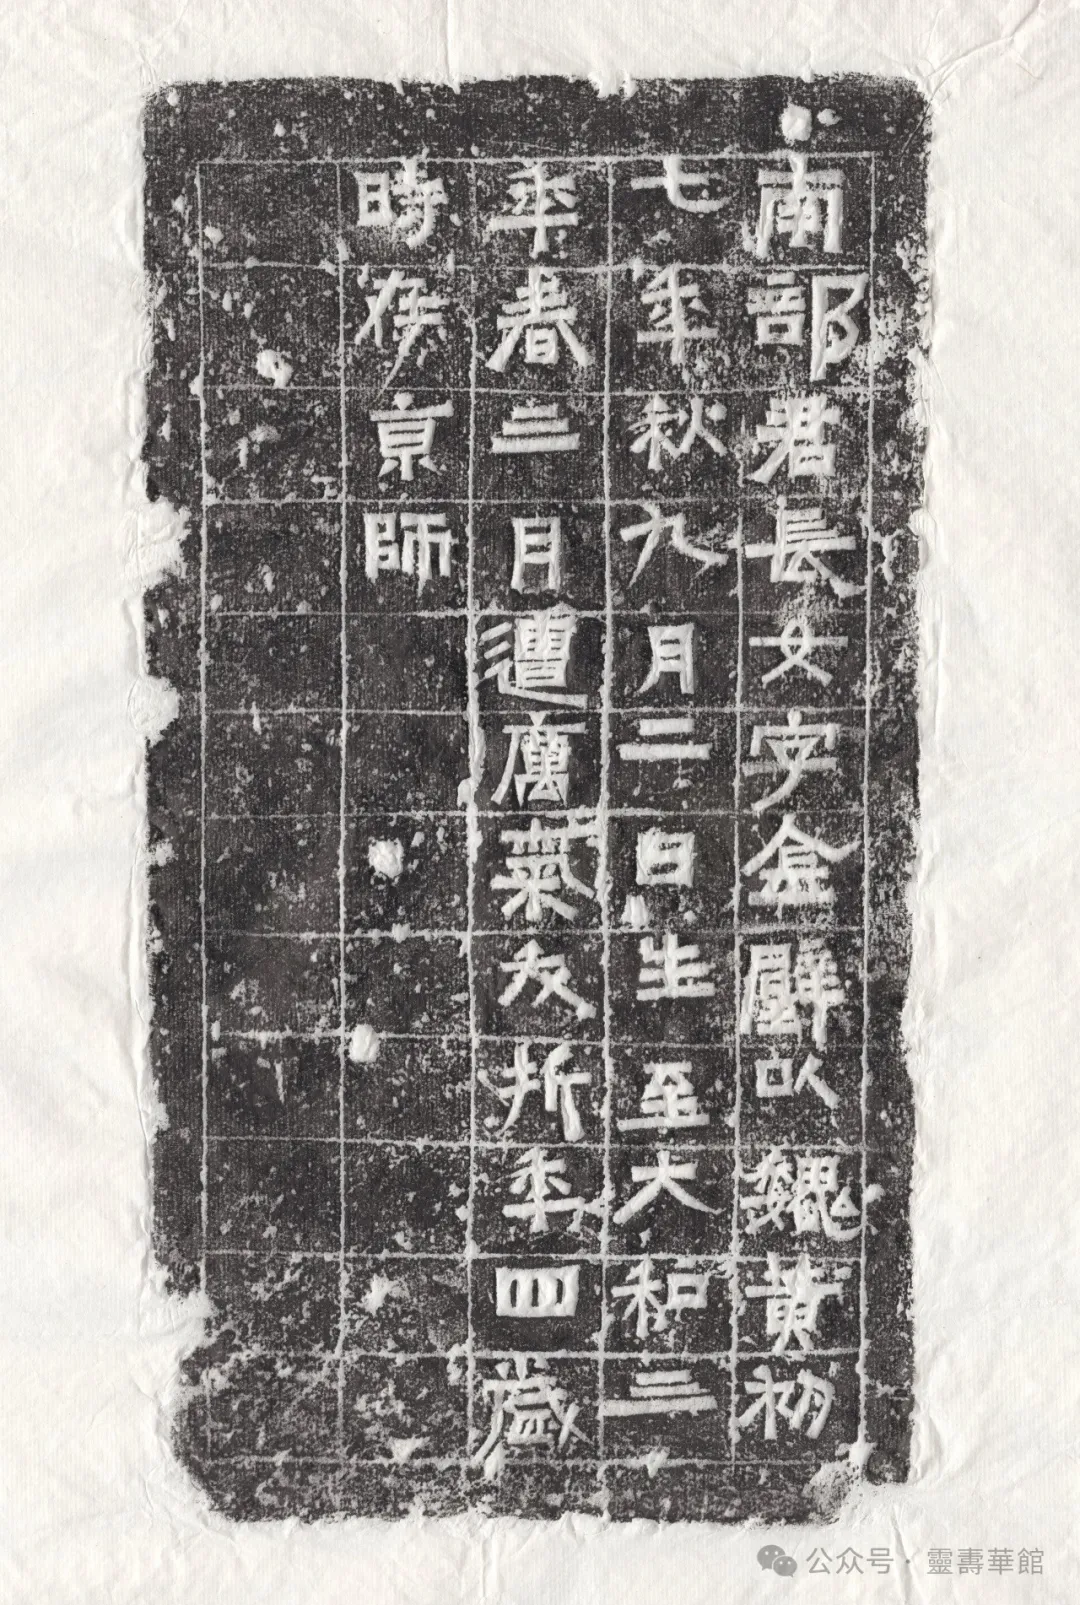 南部君長女字金以魏黃初
七年秋九月二日生至大和三
年春三月遭厲氣夭折年四歲
時京師
公众号 · 靈壽華館